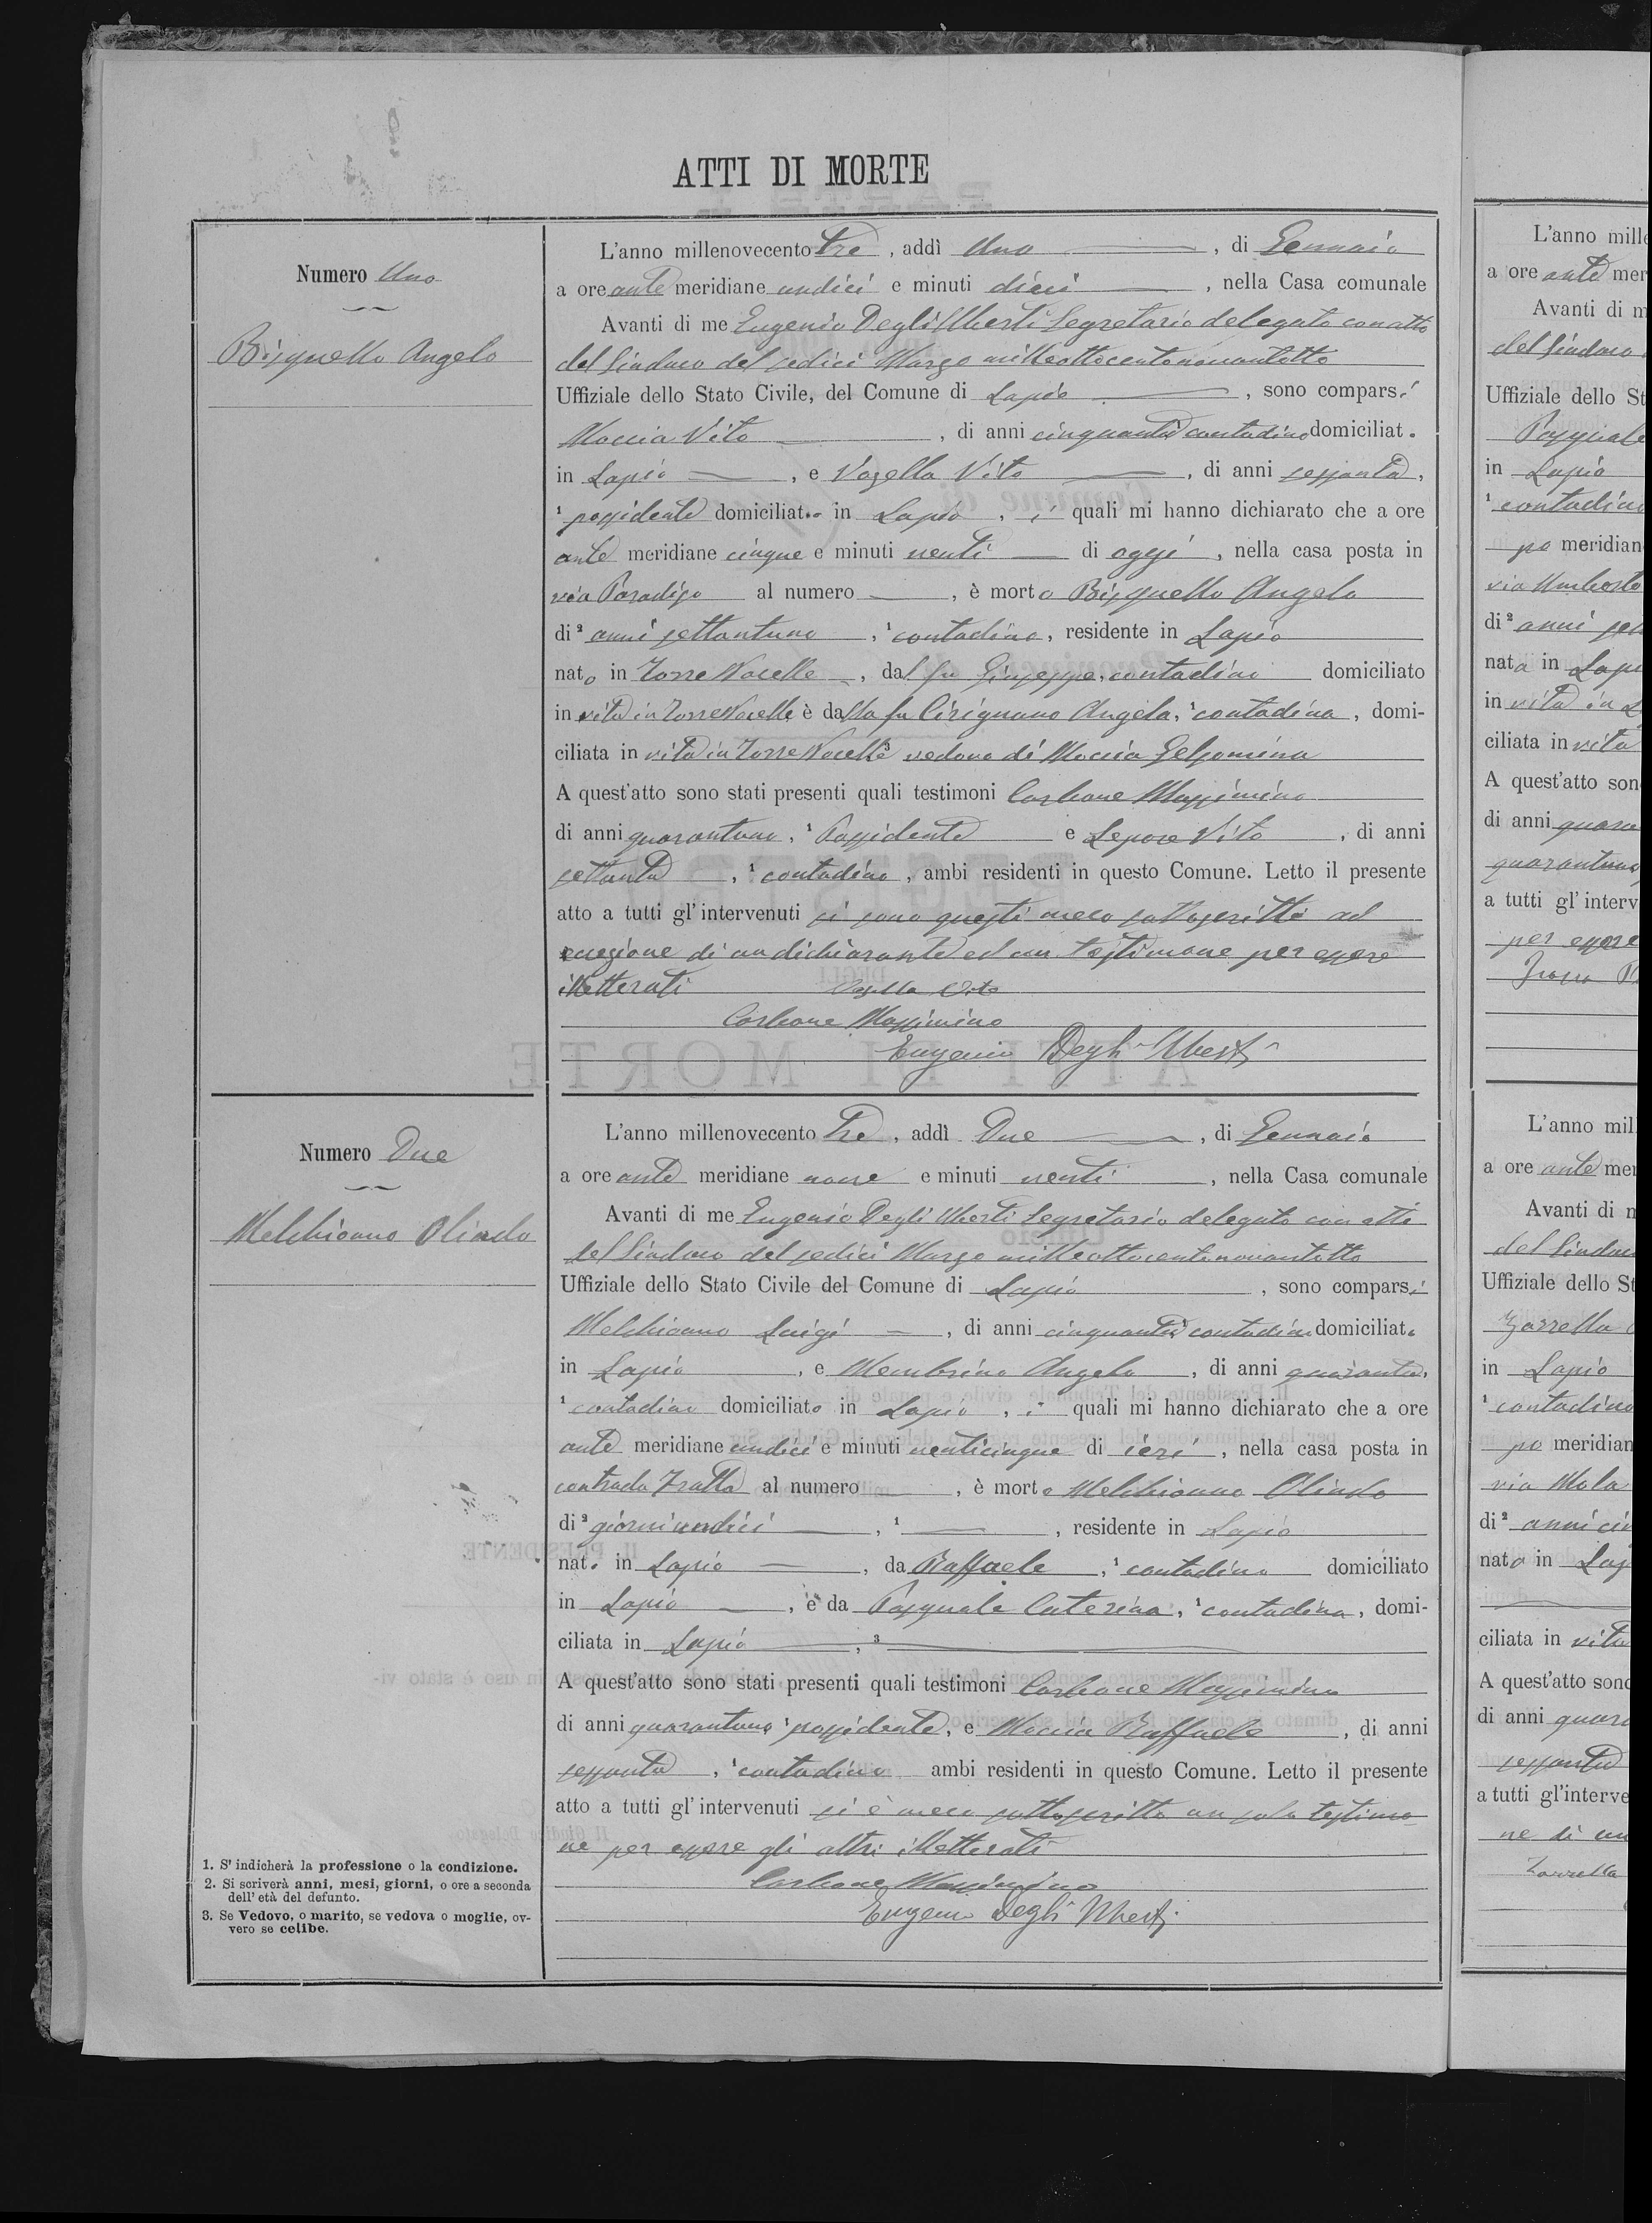 ATTI DI MORTE
Numero Uno
Bisquello Angelo
L'anno millenovecento Tre, addì Uno, di Gennaio
a ore ante meridiane undici e minuti dieci, nella Casa comunale
Avanti di me Eugenio Degli Uberti Segretario delegato con atto
del Sindaco del sedici Marzo milleottocentonovantotto
Uffiziale dello Stato Civile, del Comune di Lapio, sono comparsi
Moccia Vito, di anni cinquanta contadino domiciliato
in Lapio, e Vozella Vito, di anni sessanta,
1 possidente domiciliato in Lapio, i quali mi hanno dichiarato che a ore
ante meridiane cinque e minuti venti di oggi, nella casa posta in
via Paradiso al numero, è morto Bisquello Angelo
di 2 anni settantuno, 1 contadino, residente in Lapio
nato in Torre Nocelle, dal fu Giuseppe, contadino domiciliato
in vita in Torre Nocelle, e dalla fu Cirignano Angela, 1 contadina, domi-
ciliata in vita in Torre Nocelle 3 vedovo di Moccia Gelsomina
A quest'atto sono stati presenti quali testimoni Carbone Massimino
di anni quarantuno, 1 Possidente e Lepore Vito, di anni
settanta, 1 contadino, ambi residenti in questo Comune. Letto il presente
atto a tutti gl'intervenuti si sono questi meco sottoscritti ad
eccezione di un dichiarante ed un testimone per essere
illetterati Vozella Vito
Carbone Massimino
Eugenio Degli Uberti
Numero Due
Melchionno Olindo
L'anno millenovecento Tre, addì Due, di Gennaio
a ore ante meridiane nove e minuti venti, nella Casa comunale
Avanti di me Eugenio Degli Uberti Segretario delegato con atto
del Sindaco del sedici Marzo milleottocentonovantotto
Uffiziale dello Stato Civile del Comune di Lapio, sono comparsi
Melchionno Luigi, di anni cinquanta 1 contadino domiciliato
in Lapio, e Membrino Angelo, di anni quaranta,
1 contadino domiciliato in Lapio, i quali mi hanno dichiarato che a ore
ante meridiane undici e minuti venticinque di ieri, nella casa posta in
contrada Fratta al numero, è morto Melchionno Olindo
di 2 giorni undici, 1, residente in Lapio
nato in Lapio, da Raffaele, 1 contadino domiciliato
in Lapio, e da Pasquale Caterina, 1 contadina, domi-
ciliata in Lapio, 3
A quest'atto sono stati presenti quali testimoni Carbone Massimino
di anni quarantuno 1 possidente, e Moccia Raffaele, di anni
sessanta, 1 contadino ambi residenti in questo Comune. Letto il presente
atto a tutti gl'intervenuti si è meco sottoscritto un solo testimo
ne per essere gli altri illetterati
Carbone Massimino
Eugenio Degli Uberti
1. S'indicherà la professione o la condizione.
2. Si scriverà anni, mesi, giorni, o ore a seconda
dell'età del defunto.
3. Se Vedovo, o marito, se vedova o moglie, ov-
vero se celibe.
L'anno mill
a ore ante mer
Avanti di m
del Sindaco
Uffiziale dello St
Pasquale
in Lapio
1 contadino
po meridian
via Umberto
di 2 anni
nata in Lapi
in vita in L
ciliata in vita
A quest'atto son
di anni quara
quarantuno
a tutti gl'interv
per essere
L'anno mil
a ore ante mer
Avanti di m
del Sindaco
Uffiziale dello St
Zarrella
in Lapio
1 contadino
po meridian
via Mola
di 2 anni cin
nato in Lap
ciliata in vita
A quest'atto sono
di anni quara
sessanta
a tutti gl'interve
ne di un
Zarrella